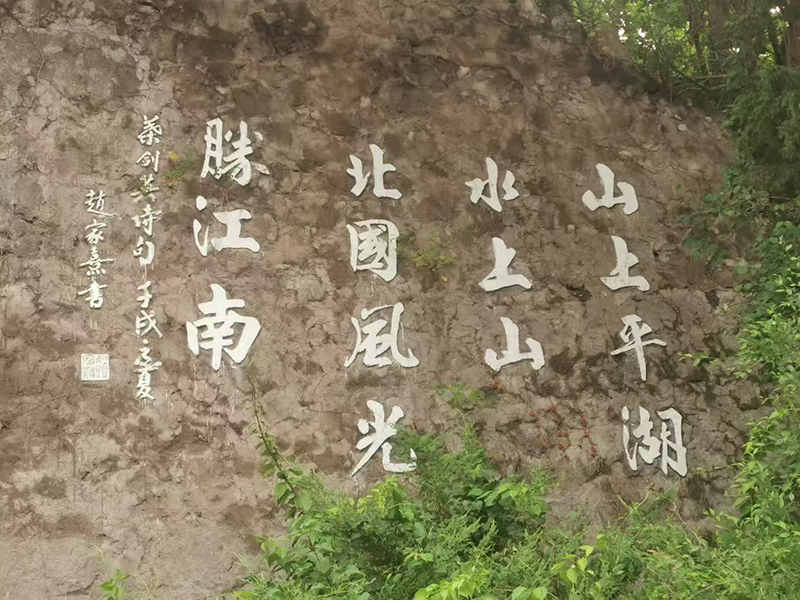 山上平湖
水上山
北國風光
勝江南
葉剑英诗句 壬戌之夏
趙家熹書